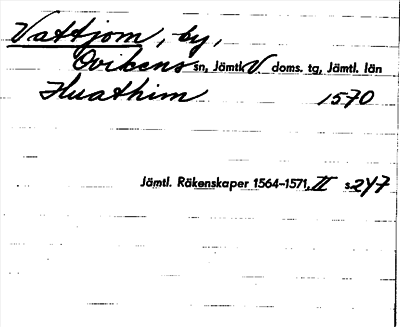 Vattjom, by,
Ovikens sn, Jämtl. V doms. tg, Jämtl. län
Huathim 1570
Jämtl. Räkenskaper 1564-1571, II s. 247